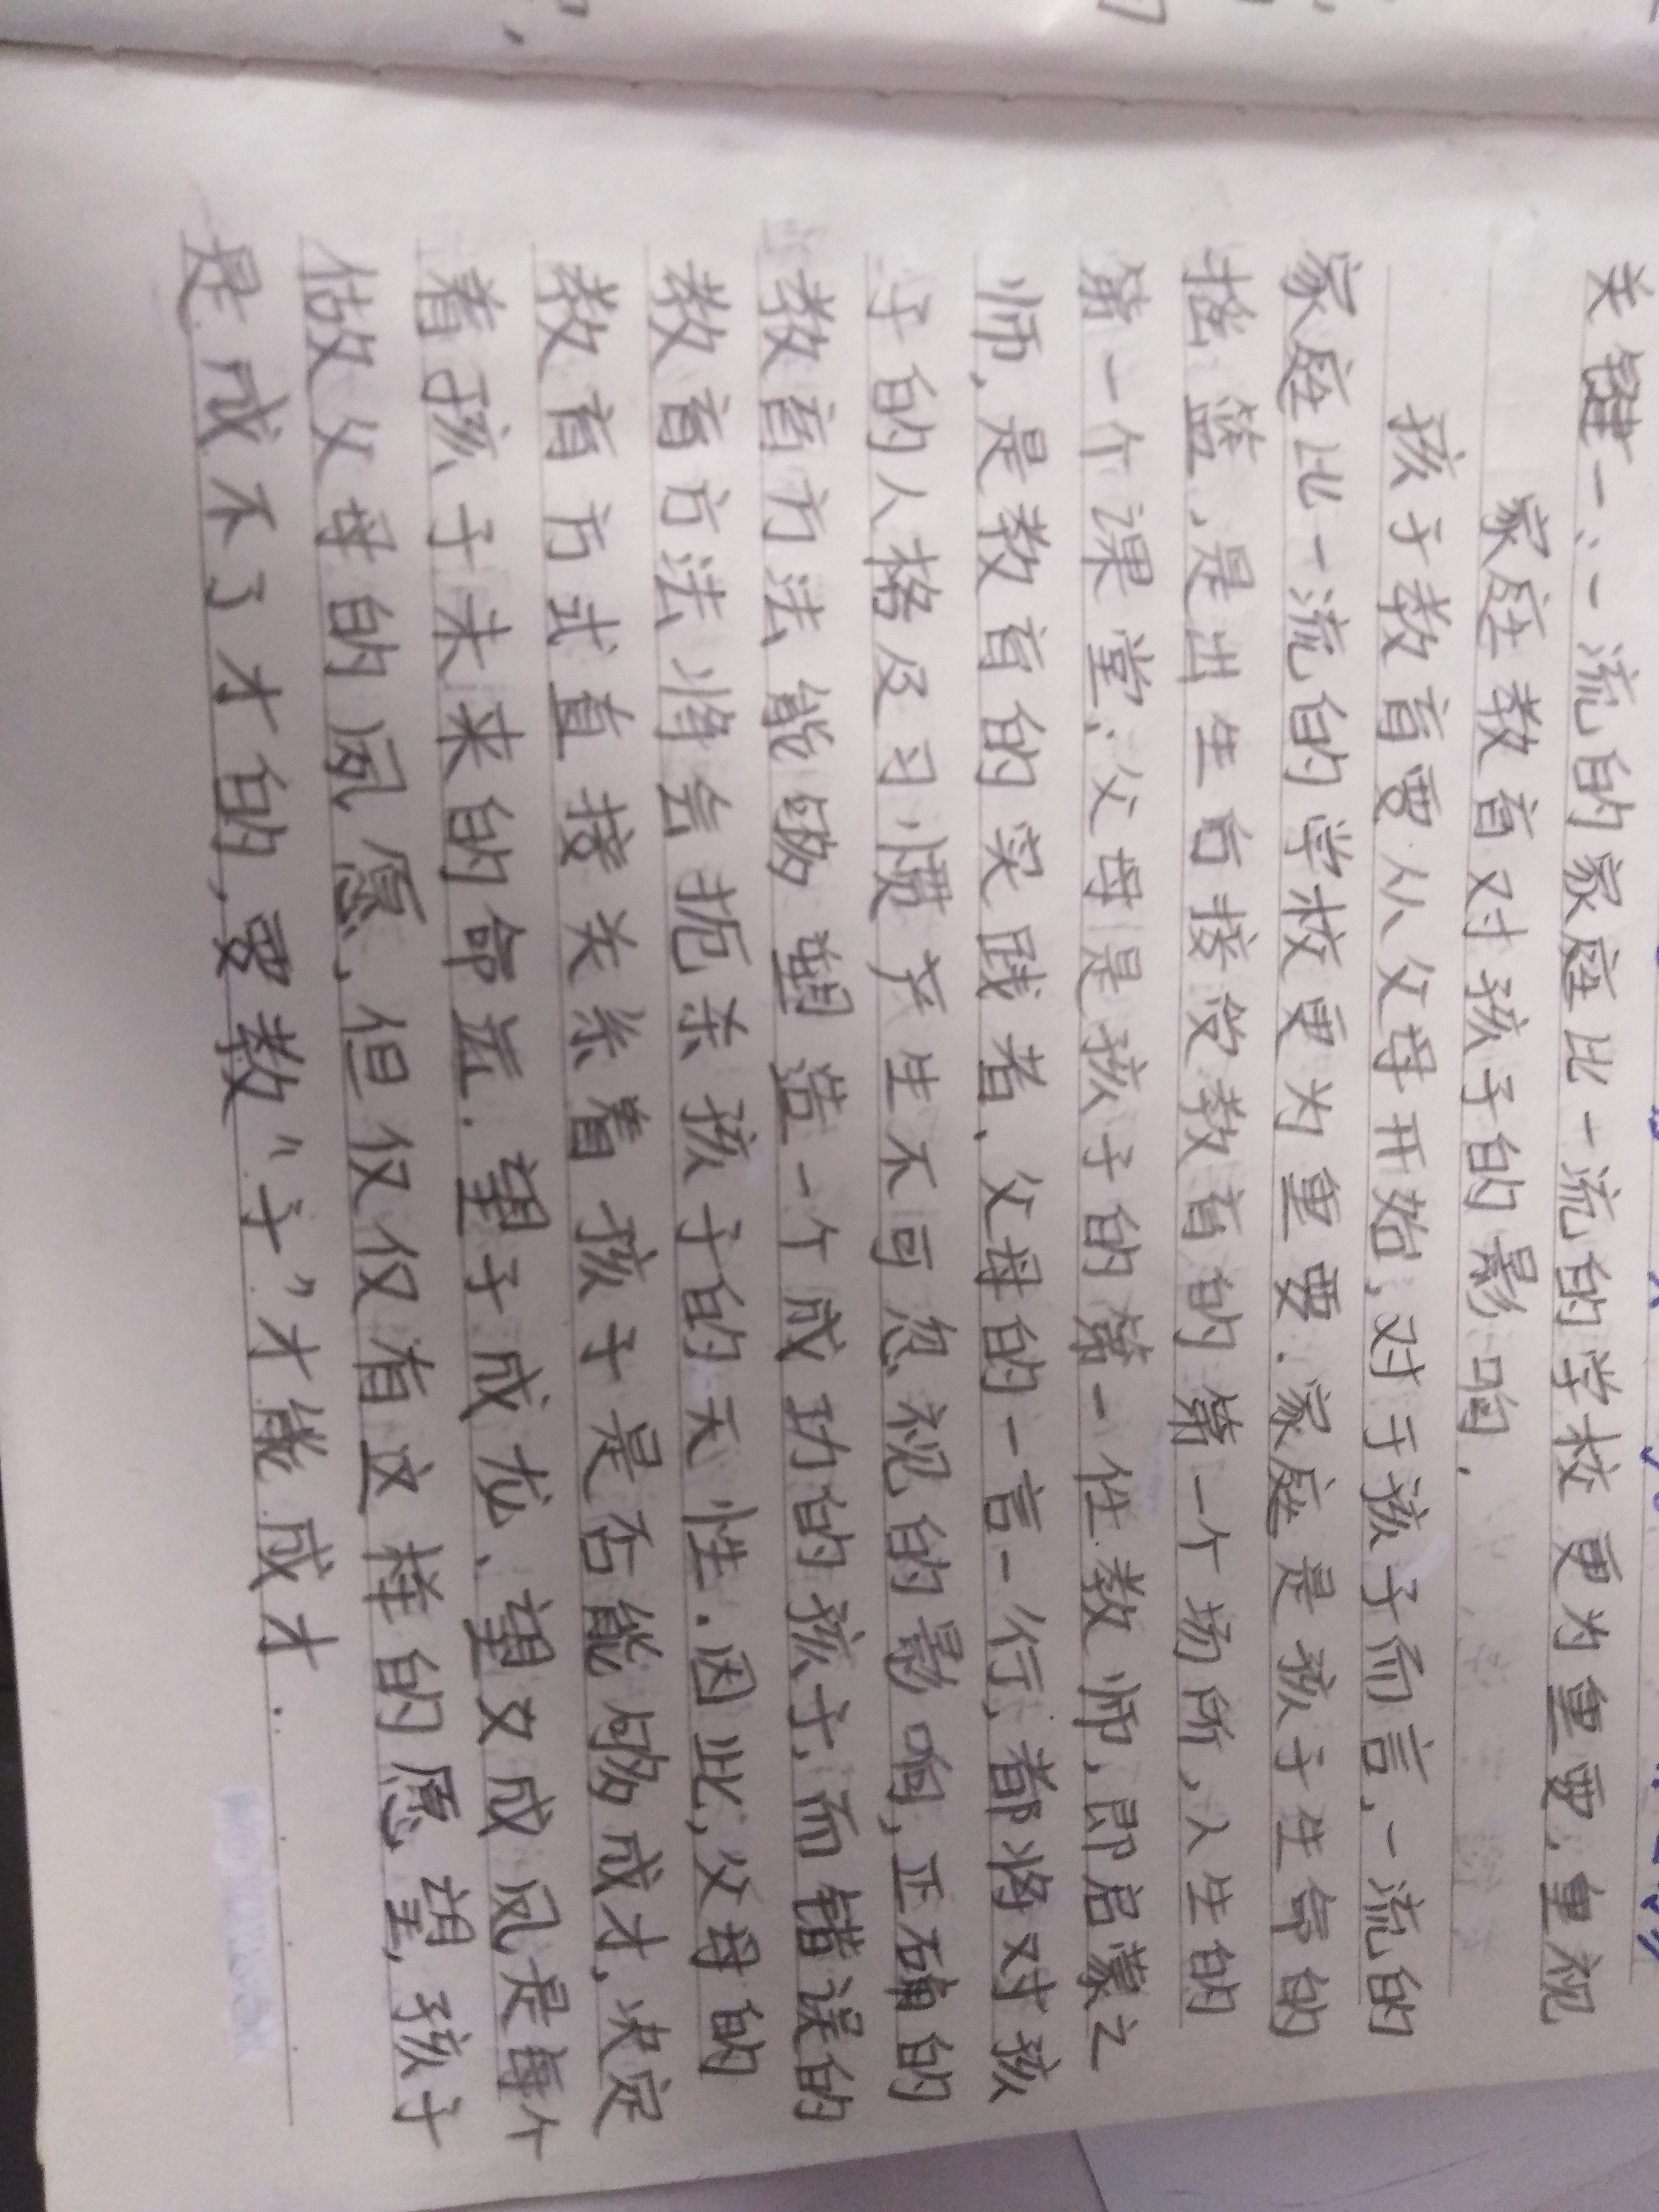 关键一、一流的家庭比一流的学校更为重要,重视
家庭教育对孩子的影响.
孩子教育要从父母开始,对于孩子而言,一流的
家庭比一流的学校更为重要.家庭是孩子生命的
摇篮,是出生后接受教育的第一个场所,人生的
第一个课堂、父母是孩子的第一任教师,即启蒙之
师,是教育的实践者、父母的一言一行,都将对孩
子的人格及习惯产生不可忽视的影响,正确的
教育方法能够塑造一个成功的孩子,而错误的
教育方法将会扼杀孩子的天性.因此,父母的
教育方式直接关系着孩子是否能够成才,决定
着孩子未来的命运.望子成龙、望女成凤是每个
做父母的夙愿,但仅仅有这样的愿望,孩子
是成不了才的,要教“子”才能成才..